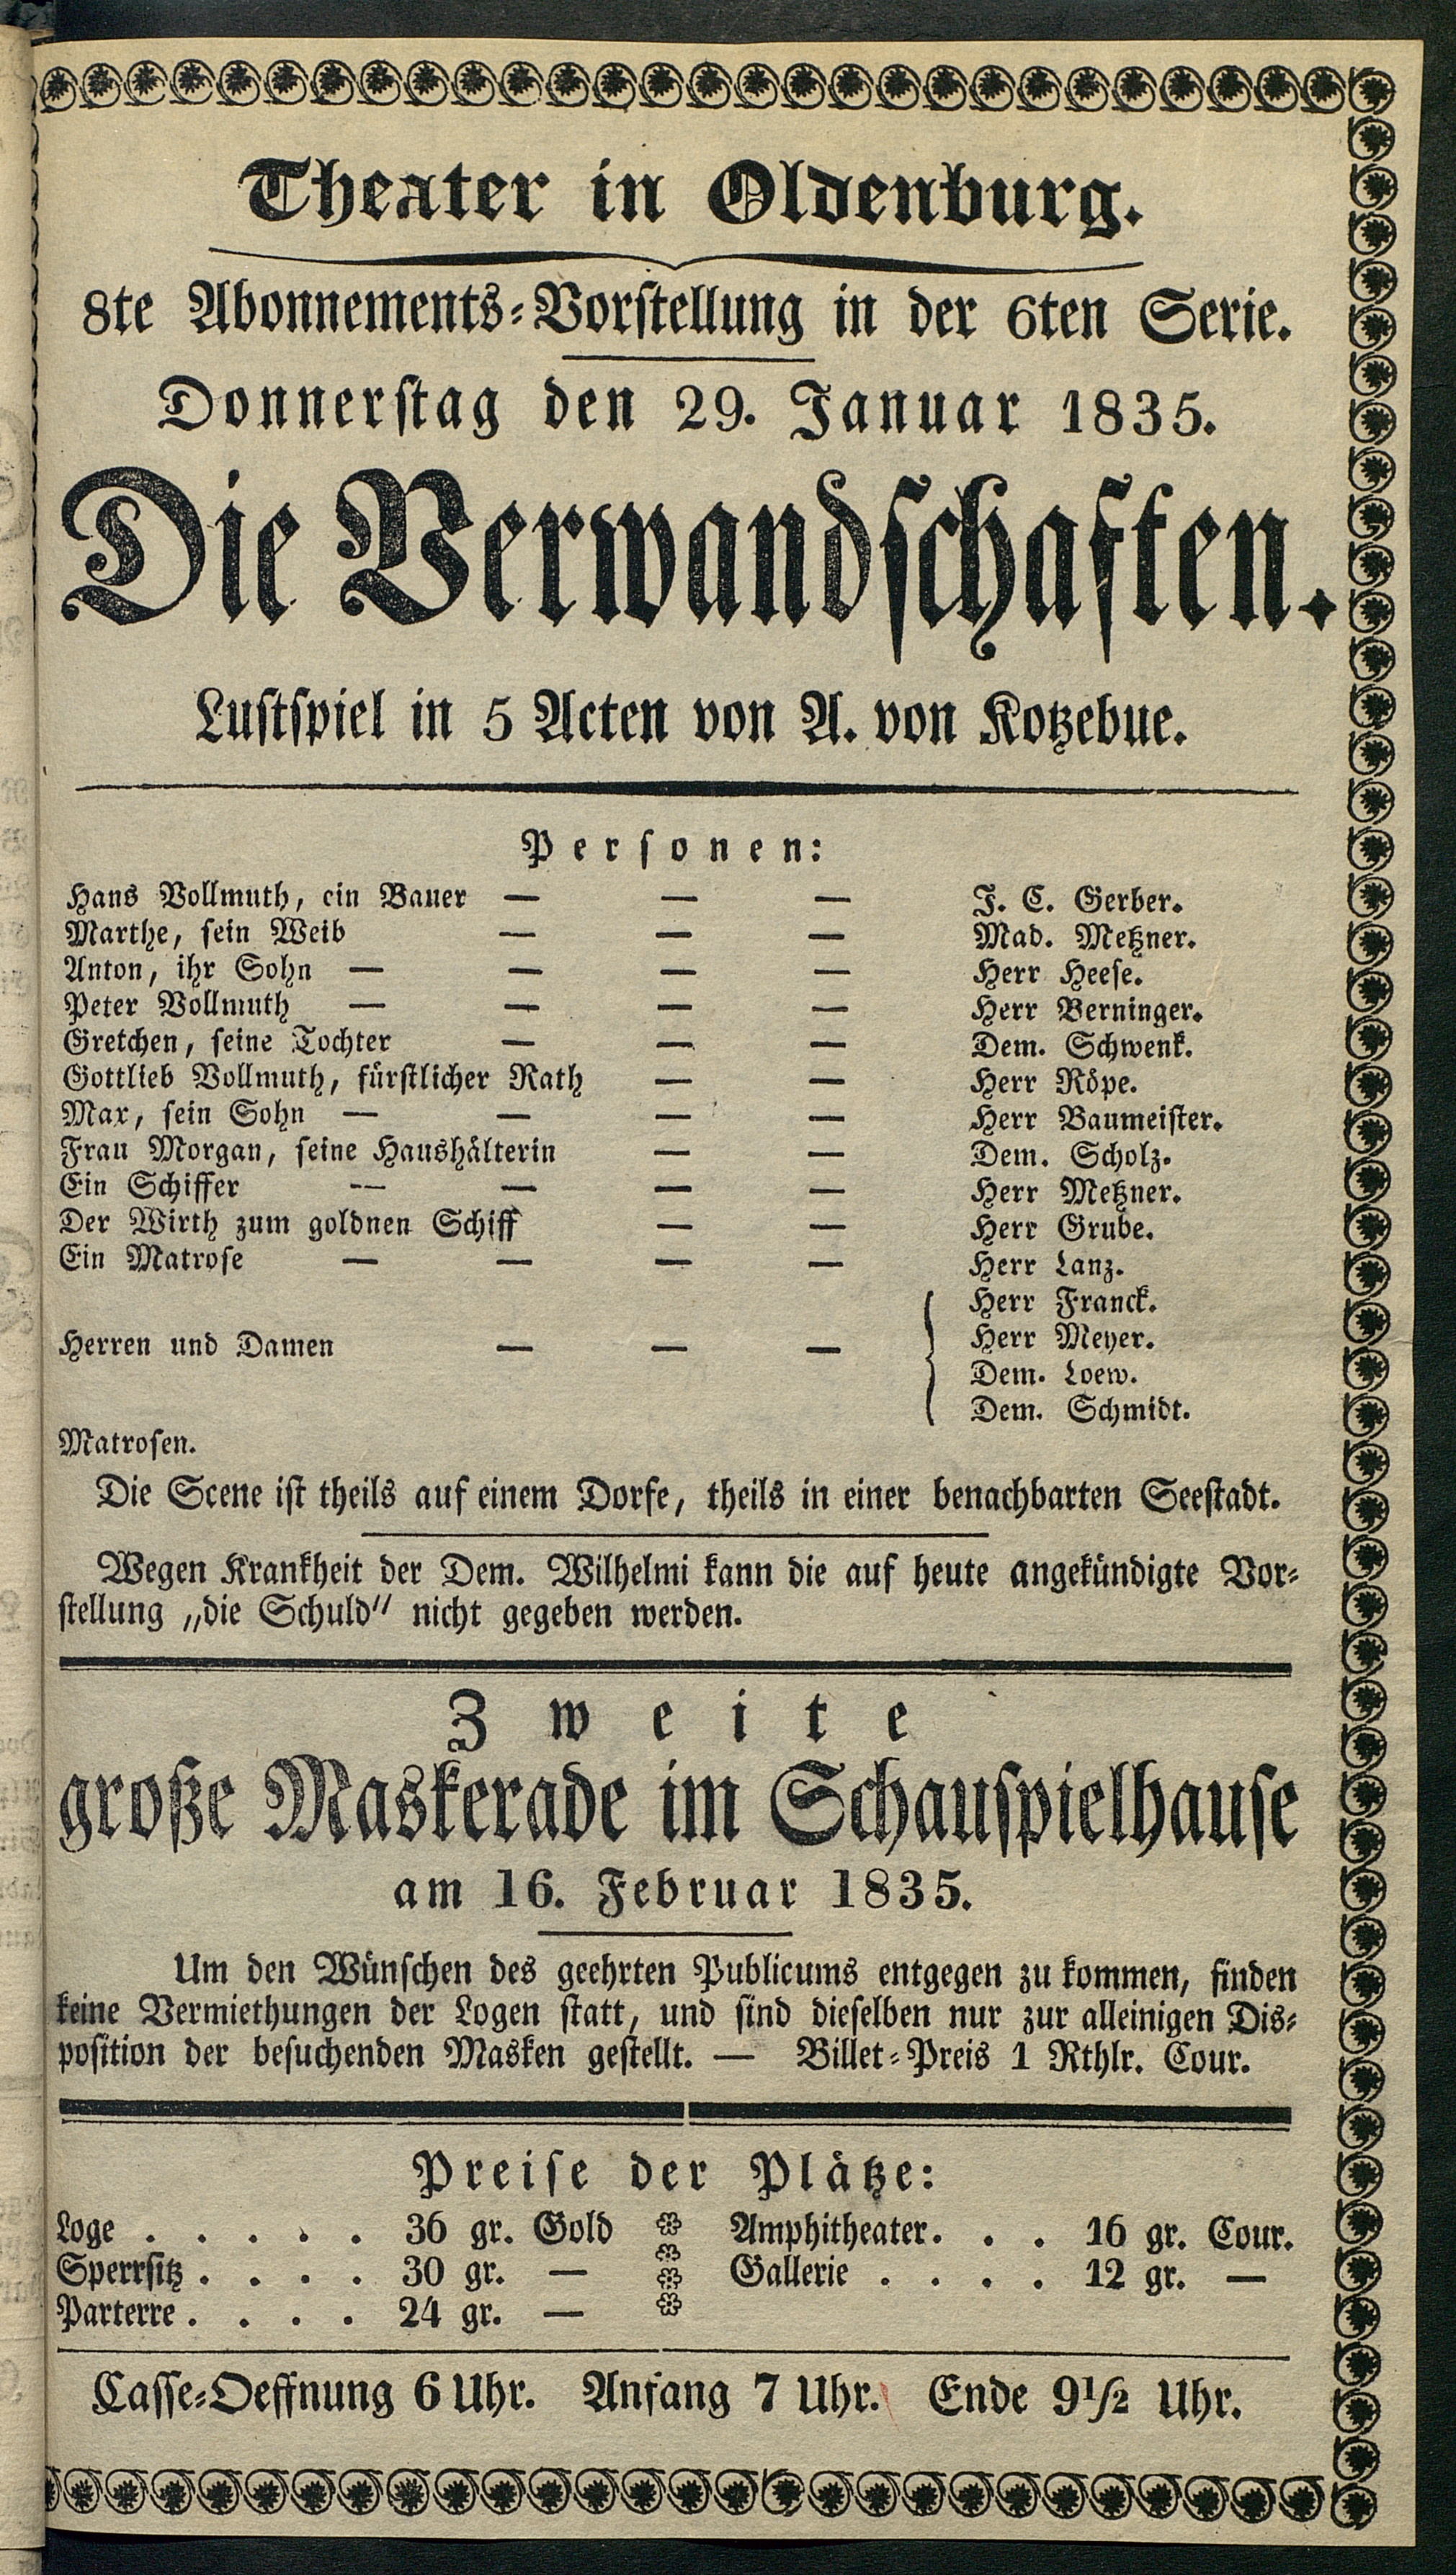 Theater in Oldenburg.
8te Abonnements-Vorstellung in der 6ten Serie.
Donnerstag den 29. Januar 1835.
Die Verwandschaften.
Lustspiel in 5 Acten von A. von Kotzebue.
Personen:
Hans Vollmuth, ein Bauer — — — J. C. Gerber.
Marthe, sein Weib — — — Mad. Metzner.
Anton, ihr Sohn — — — — Herr Heese.
Peter Vollmuth — — — — Herr Berninger.
Gretchen, seine Tochter — — — Dem. Schwenk.
Gottlieb Vollmuth, fürstlicher Rath — — Herr Röpe.
Max, sein Sohn — — — — Herr Baumeister.
Frau Morgan, seine Haushälterin — — Dem. Scholz.
Ein Schiffer — — — — Herr Metzner.
Der Wirth zum goldnen Schiff — — Herr Grube.
Ein Matrose — — — — Herr Lanz.
Herr Franck.
Herren und Damen — — — Herr Meyer.
Dem. Loew.
Dem. Schmidt.
Matrosen.
Die Scene ist theils auf einem Dorfe, theils in einer benachbarten Seestadt.
Wegen Krankheit der Dem. Wilhelmi kann die auf heute angekündigte Vor-
stellung „die Schuld" nicht gegeben werden.
Zweite
große Maskerade im Schauspielhause
am 16. Februar 1835.
Um den Wünschen des geehrten Publicums entgegen zu kommen, finden
keine Vermiethungen der Logen statt, und sind dieselben nur zur alleinigen Dis-
position der besuchenden Masken gestellt. — Billet-Preis 1 Rthlr. Cour.
Preise der Plätze:
Loge . . . . . 36 gr. Gold Amphitheater. . . 16 gr. Cour.
Sperrsitz . . . . 30 gr. — Gallerie . . . . 12 gr. —
Parterre . . . . 24 gr. —
Casse-Oeffnung 6 Uhr. Anfang 7 Uhr. Ende 9½ Uhr.